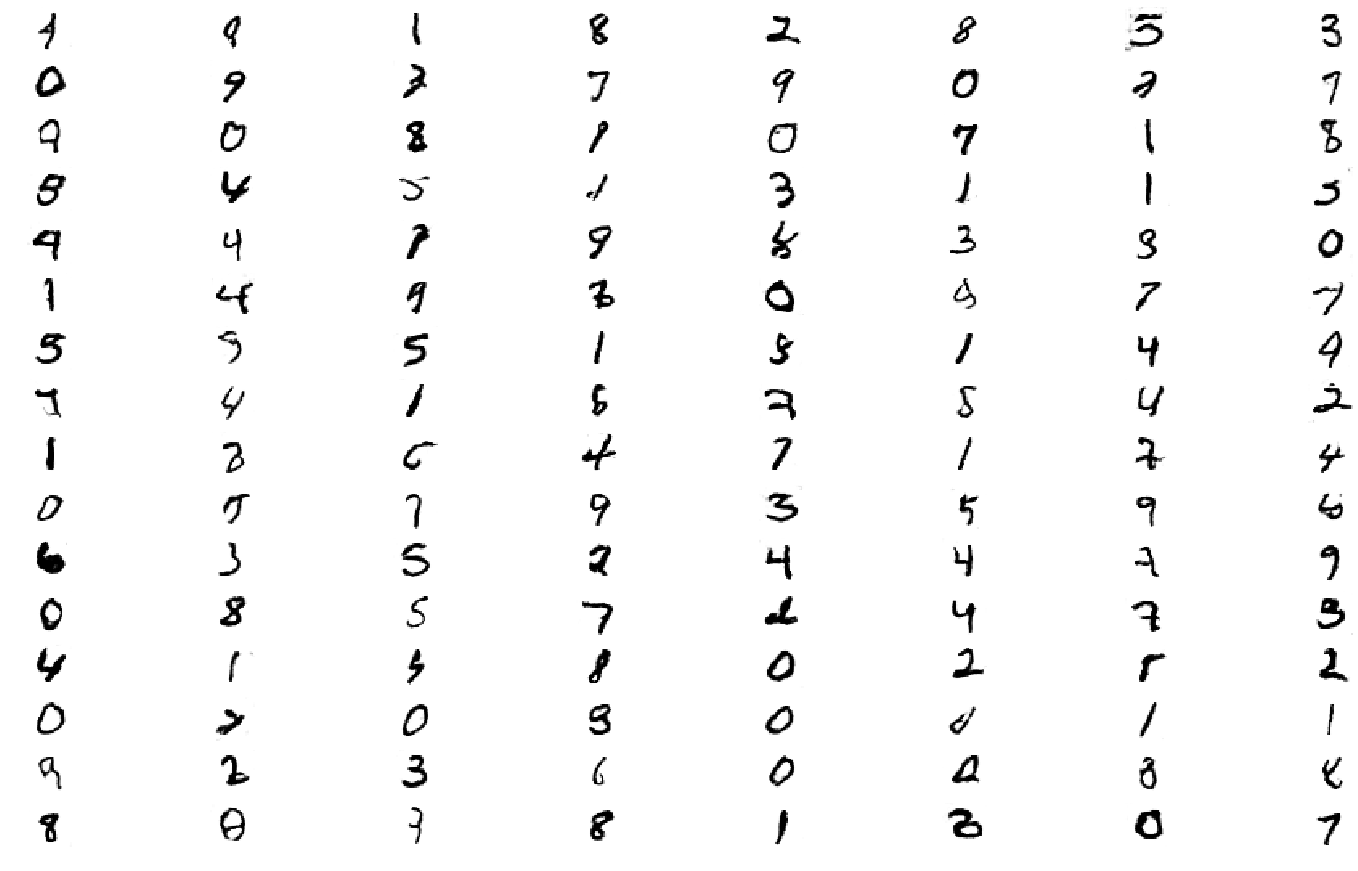 9 9 1 8 2 8 5 3
0 9 3 7 9 0 2 7
9 0 8 1 0 7 1 8
8 4 5 1 3 1 1 5
9 4 7 9 8 3 9 0
1 4 9 3 0 9 7 7
5 5 5 1 8 1 4 9
7 4 1 5 2 5 4 2
1 3 5 4 7 1 7 4
0 5 7 9 3 5 9 6
6 3 5 2 4 4 7 9
0 8 5 7 2 4 7 3
4 1 5 8 0 2 5 2
0 2 0 9 0 1 1
9 2 3 6 0 2 8 8
8 0 7 8 1 3 0 7